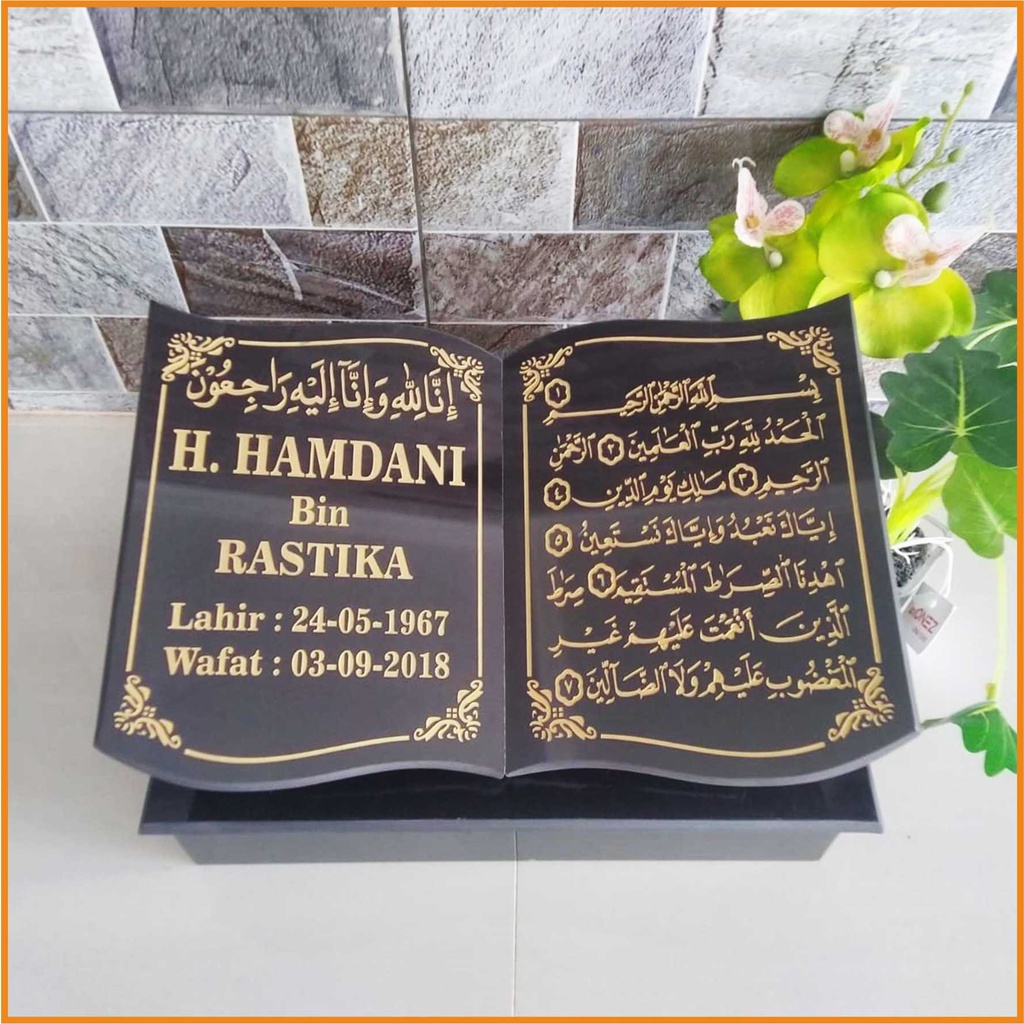 إِنَّا لِلّٰهِ وَإِنَّآ إِلَيْهِ رَاجِعُوْنَ
H. HAMDANI
Bin
RASTIKA
Lahir : 24-05-1967
Wafat : 03-09-2018
بِسْمِ ٱللَّهِ ٱلرَّحْمَٰنِ ٱلرَّحِيمِ ١
ٱلْحَمْدُ لِلَّهِ رَبِّ ٱلْعَٰلَمِينَ ٢ ٱلرَّحْمَٰنِ
ٱلرَّحِيمِ ٣ مَٰلِكِ يَوْمِ ٱلدِّينِ ٤
إِيَّاكَ نَعْبُدُ وَإِيَّاكَ نَسْتَعِينُ ٥
ٱهْدِنَا ٱلصِّرَٰطَ ٱلْمُسْتَقِيمَ ٦ صِرَٰطَ
ٱلَّذِينَ أَنْعَمْتَ عَلَيْهِمْ غَيْرِ
ٱلْمَغْضُوبِ عَلَيْهِمْ وَلَا ٱلضَّآلِّينَ ٧